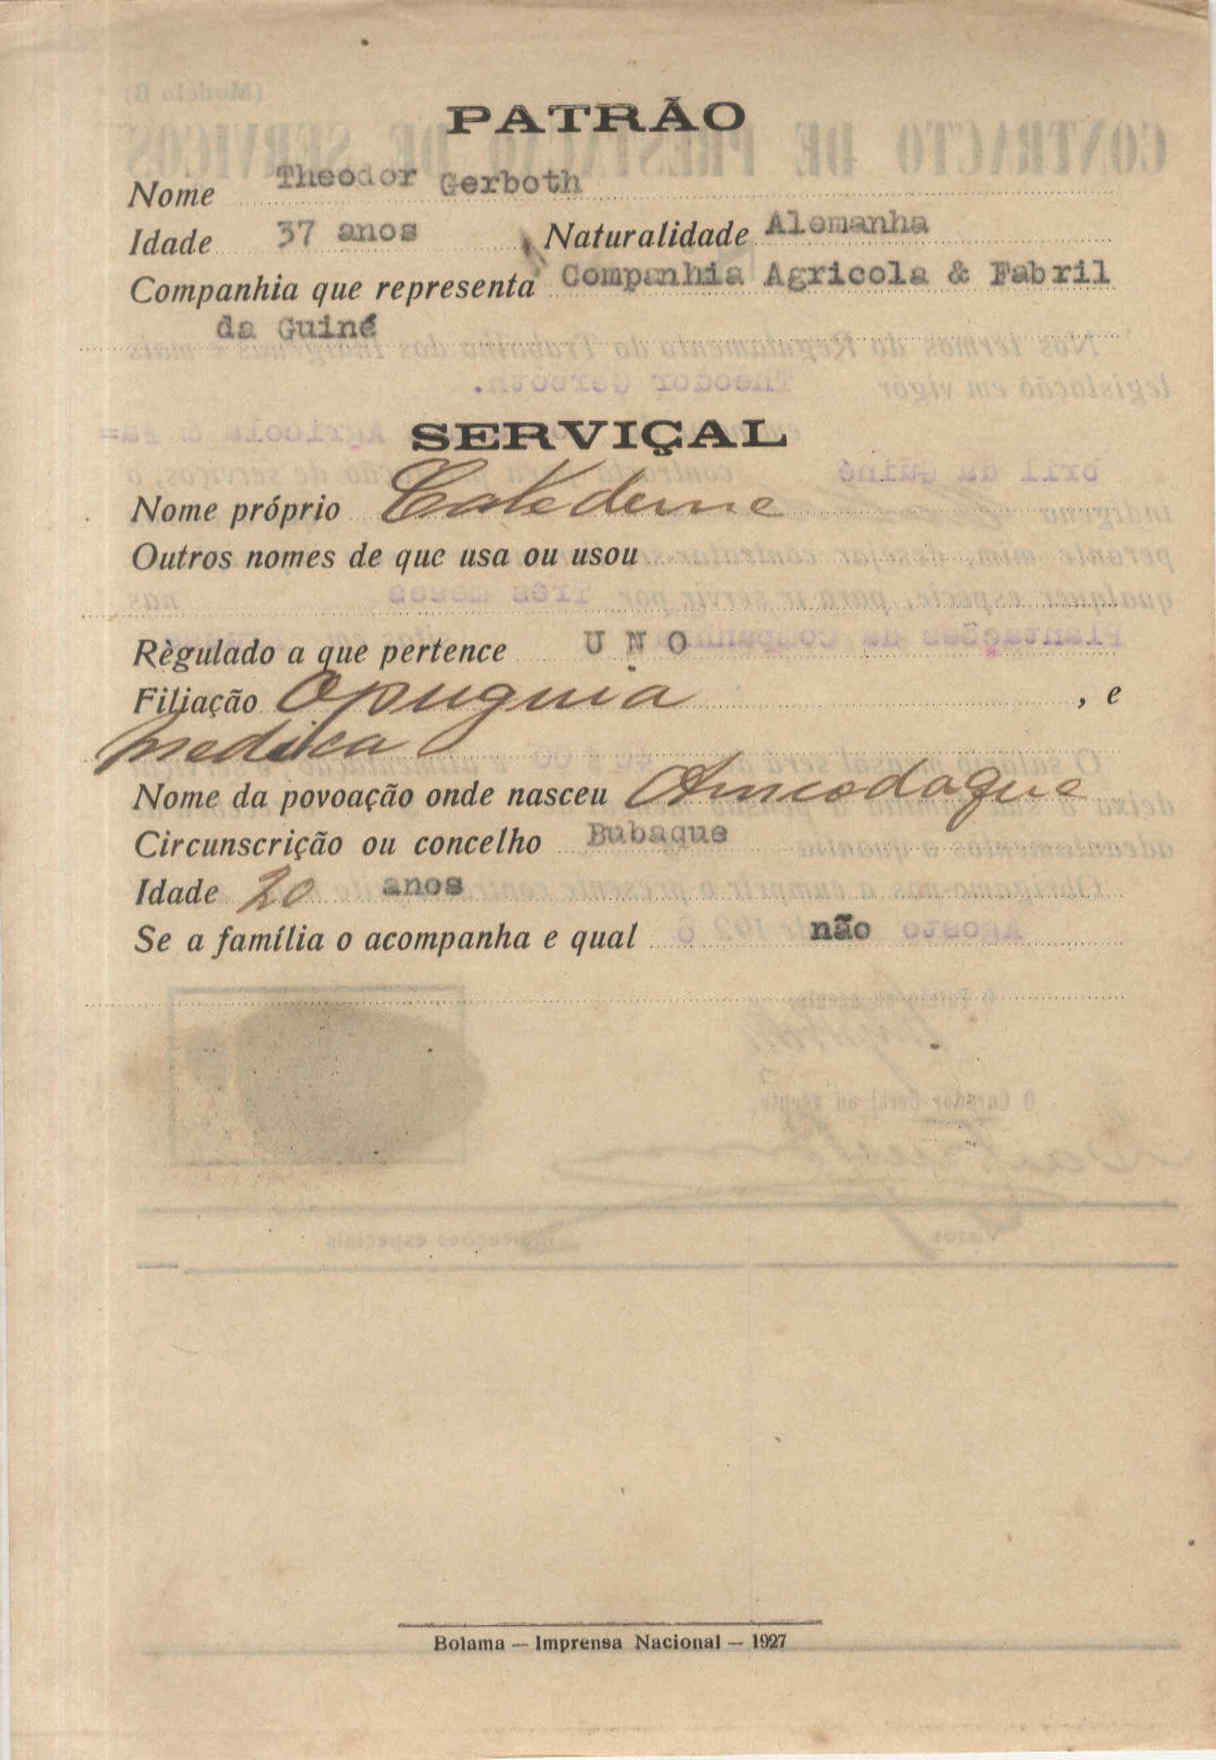 PATRÃO
Nome Theodor Gerboth
Idade 37 anos Naturalidade Alemanha
Companhia que representa Companhia Agricola & Fabril
da Guiné
SERVIÇAL
Nome próprio
Outros nomes de que usa ou usou
Règulado a que pertence UNO
Filiação Opuguia , e
medica
Nome da povoação onde nasceu
Circunscrição ou concelho Bubaque
Idade 20 anos
Se a família o acompanha e qual não
Bolama — Imprensa Nacional — 1927